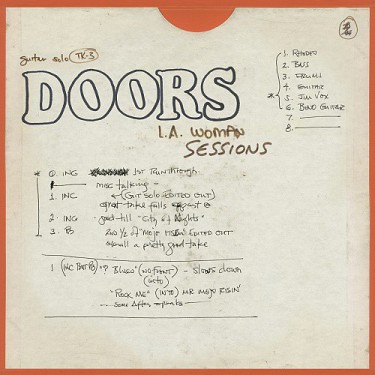 guitar solo TK-3
DOORS
L.A. WOMAN
SESSIONS
1. RHODES
2. BASS
3. DRUMS
4. GUITAR
* 5. JIM VOX
6. BEND GUITAR
7.
8.
* 0. INC 1ST RUNTHROUGH
misc talking -
1. INC ← (GUT SOLO EDITED OUT)
great take falls apart @
2. INC - good till "City of Nights"
3. PB 2ND ½ of "MOJO RISIN" EDITED OUT
overall a pretty good take
1 (INC BUT PB) "? BLUES" (NO FRONT) - SLOWS down
(INTO)
"ROCK ME" (INTO) MR MOJO RISIN'
some After